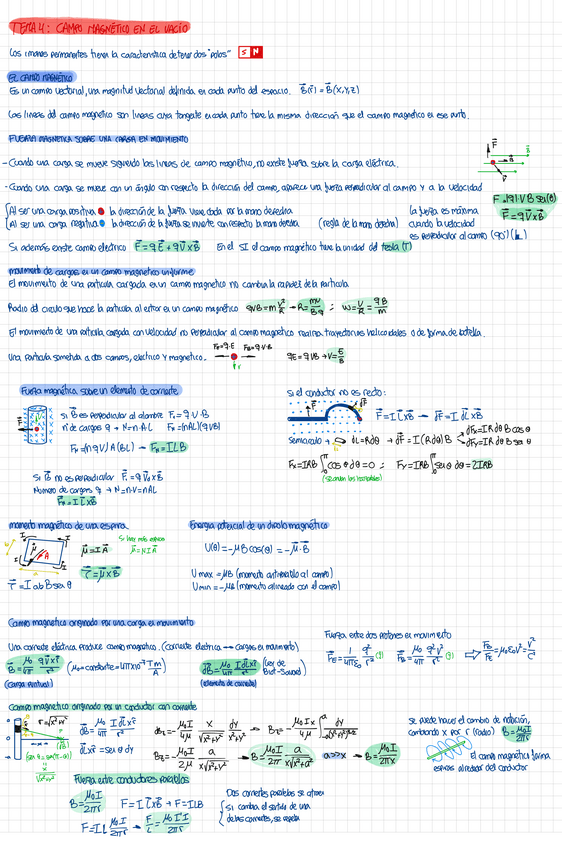 TEMA 4: CAMPO MAGNÉTICO EN EL VACÍO
Los imanes permanentes tienen la característica de tener dos "polos" S N
EL CAMPO MAGNÉTICO
Es un campo vectorial, una magnitud vectorial definida en cada punto del espacio. B(r) = B(x,y,z)
Las líneas del campo magnético son líneas cuya tangente en cada punto tiene la misma dirección que el campo magnético en ese punto.
FUERZA MAGNÉTICA SOBRE UNA CARGA EN MOVIMIENTO
- Cuando una carga se mueve siguiendo las líneas de campo magnético, no existe fuerza sobre la carga eléctrica.
- Cuando una carga se mueve con un ángulo con respecto la dirección del campo, aparece una fuerza perpendicular al campo y a la velocidad
F = |q|·V·B sen(θ)
F = q V x B
Al ser una carga positiva la dirección de la fuerza viene dada por la mano derecha
Al ser una carga negativa la dirección de la fuerza se invierte con respecto la mano derecha (regla de la mano derecha)
la fuerza es máxima
cuando la velocidad
es perpendicular al campo (90º)
Si además existe campo eléctrico F = qE + qV x B En el SI el campo magnético tiene la unidad del tesla (T)
movimiento de cargas en un campo magnético uniforme
El movimiento de una partícula cargada en un campo magnético no cambia la rapidez de la partícula
Radio del círculo que hace la partícula al entrar en un campo magnético qVB = m V²/R → R = mV/Bq ; ω = V/R = qB/m
El movimiento de una partícula cargada con velocidad no perpendicular al campo magnético realiza trayectorias helicoidales o de forma de botella.
Una partícula sometida a dos campos, eléctrico y magnético. qE = qVB → V = E/B
Fuerza magnética sobre un elemento de corriente
Si B es perpendicular al alambre F₁ = q·V·B
nº de cargas q → N = n·A·L
F = (n q V) A (BL) → F = ILB
Si B no es perpendicular F₁ = q V x B
Número de cargas q → N = n·V = nAL
F = I L x B
Si el conductor no es recto:
F = I L x B → dF = I dL x B
Semicírculo → dL = Rdθ → dF = I(Rdθ)B
dFx = IRdθ B cos θ
dFy = IRdθ B sen θ
Fx = IRB ∫ cos θ dθ = 0 ; Fy = IRB ∫ sen θ dθ = 2IRB
momento magnético de una espira.
μ = I A
Si hay más espiras
μ = N I A
τ = μ x B
τ = I ab B sen θ
Energía potencial de un dipolo magnético
U(θ) = -μB cos(θ) = -μ·B
U max = μB (momento antiparalelo al campo)
U min = -μB (momento alineado con el campo)
Campo magnético originado por una carga en movimiento
Una corriente eléctrica produce campo magnético. (corriente eléctrica → cargas en movimiento)
B = μ₀/4π q V x r/r² (μ₀ = constante = 4π x 10⁻⁷ Tm/A)
(carga puntual)
dB = μ₀/4π I dL x r/r² (Ley de Biot-Savart)
(elemento de corriente)
Fuerza entre dos protones en movimiento
Campo magnético originado por un conductor con corriente
dB = μ₀/4π I dL x r/r²
a >> x
B = μ₀I/2πx
se puede hacer el cambio de notación,
cambiando x por r (radio) B = μ₀I/2πr
El campo magnético forma
espiras alrededor del conductor
Fuerza entre conductores paralelos
B = μ₀I/2πr F = I L x B → F = ILB
F = I'L μ₀I/2πr → F/L = μ₀I'I/2πr
Dos corrientes paralelas se atraen
si cambia el sentido de una
de las corrientes, se repelen